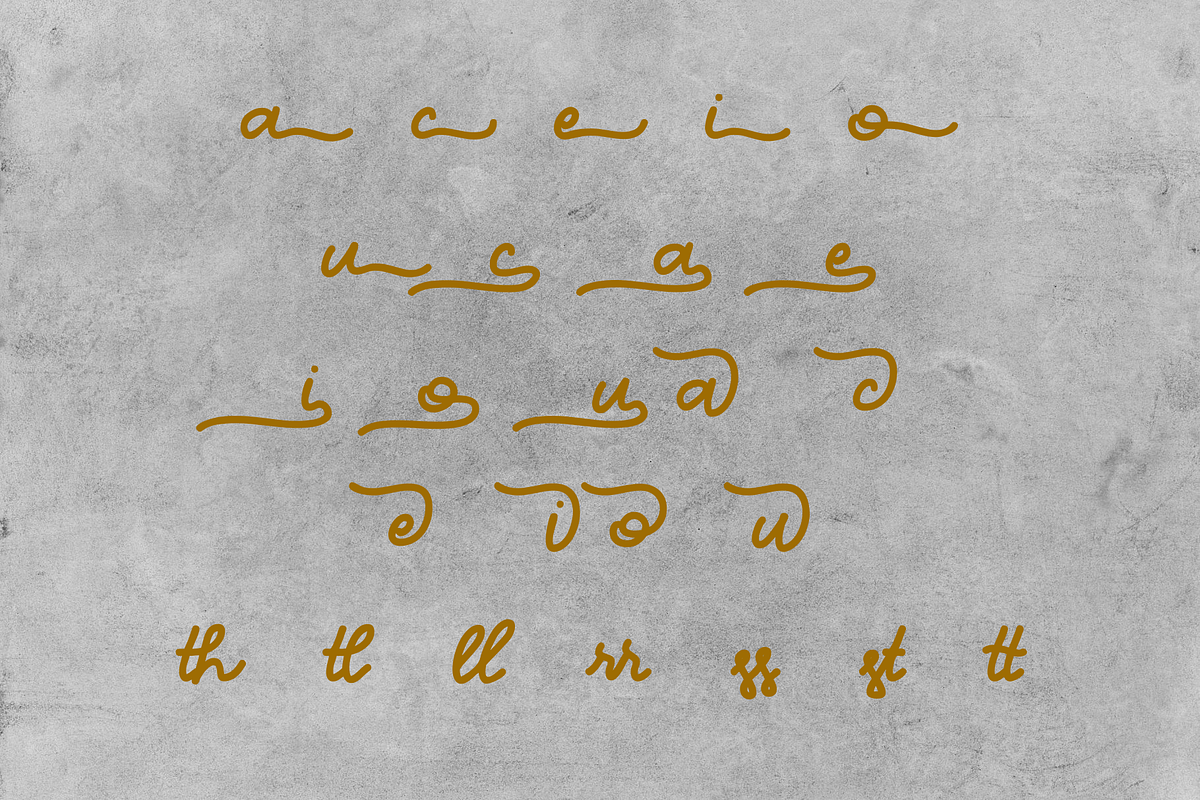 a c e i o
u c a e
i o u a c
e i o u
th tl ll rr ss st tt